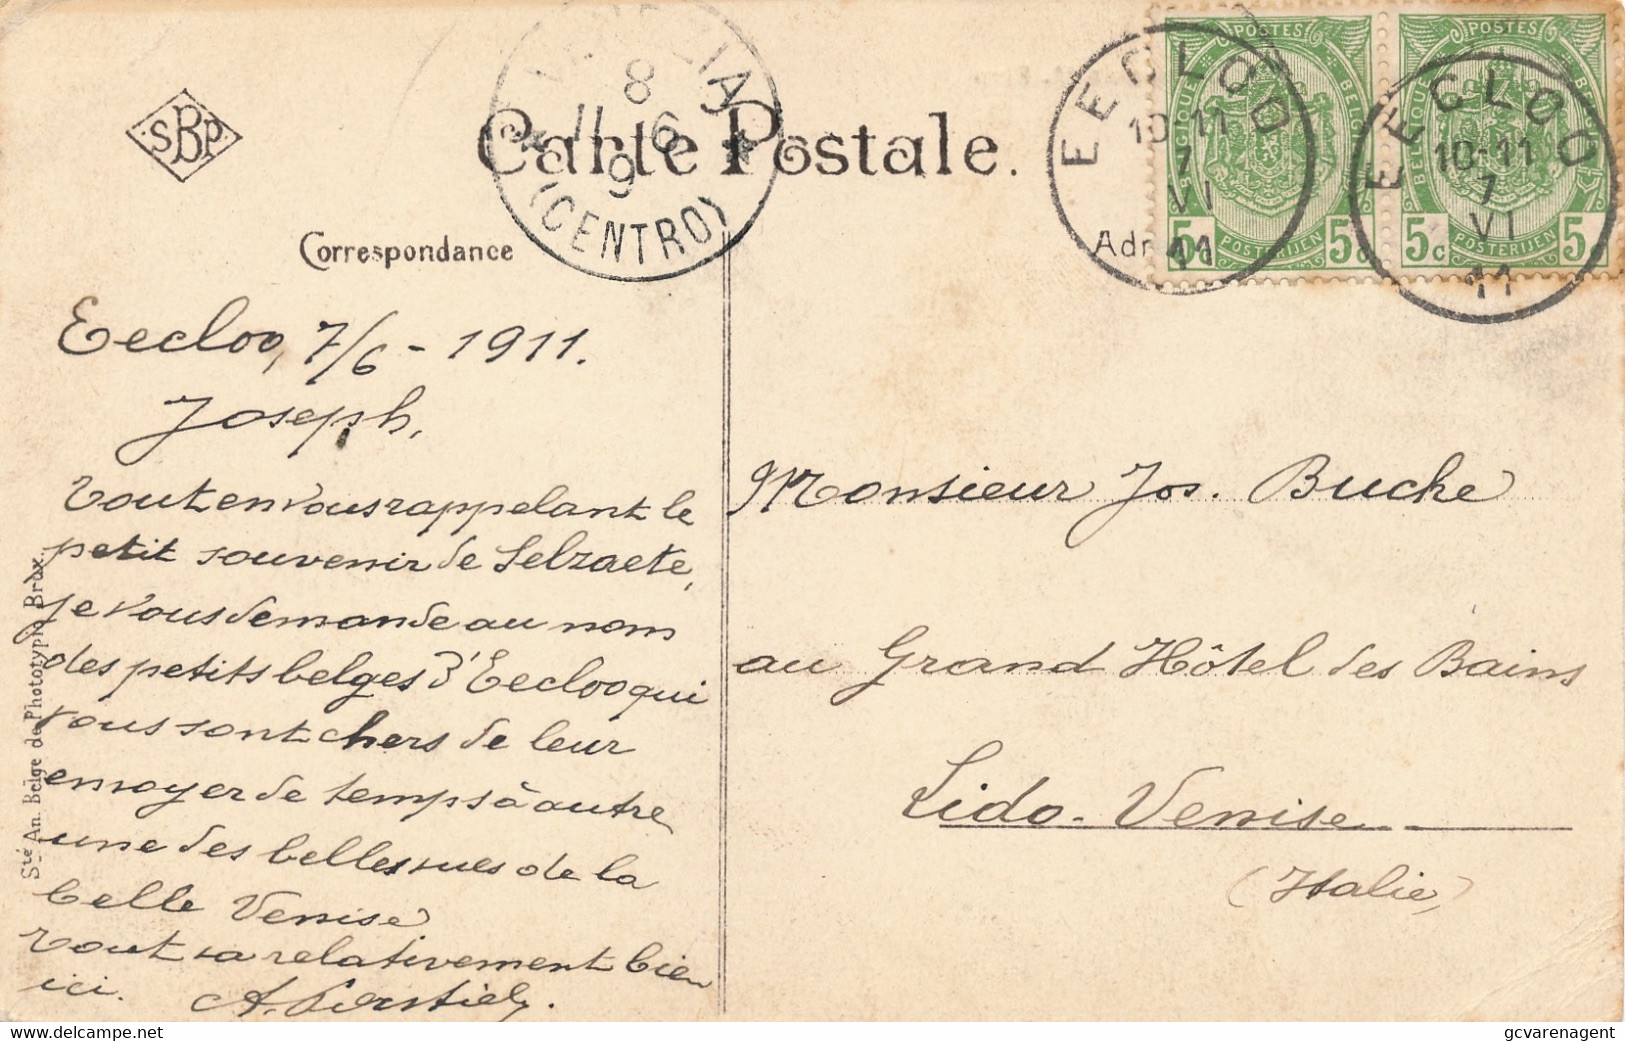 SBP
Carte Postale.
Correspondance
(CENTRO)
8
11 6
9
EECLOO
10-11
7
VI
11
EECLOO
10-11
7
VI
11
POSTES
BELGIQUE
BELGIË
5c POSTERIJEN 5c
POSTES
BELGIQUE
BELGIË
5c POSTERIJEN 5
Adr
Eecloo, 7/6 - 1911.
Joseph,
Tout en vous rappelant le
petit souvenir de Selzaete,
je vous demande au nom
des petits belges d'Eecloo qui
vous sont chers de leur
envoyer de temps à autre
une des belles vues de la
belle Venise
Tout va relativement bien
ici. A.
Monsieur Jos. Buche
au Grand Hôtel des Bains
Lido - Venise
(Italie)
Sté An. Belge de Phototypie Brux.
www.delcampe.net
gcvarenagent